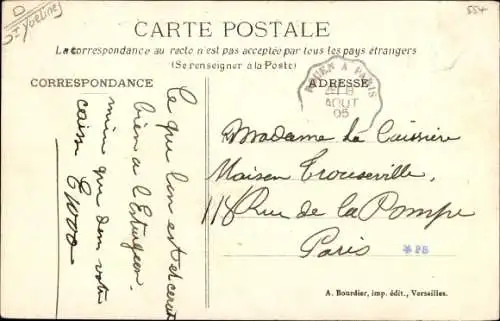 554
D
St Yvelines
CARTE POSTALE
La correspondance au recto n'est pas acceptée par tous les pays étrangers
(Se renseigner à la Poste)
CORRESPONDANCE
ce que l'on est
bien a l'Esturgeon.
mieux que dans votre
caisse
ADRESSE
ROUEN A PARIS
AOUT
05
Madame La Caissière
Maison Trouseville,
118 Rue de la Pompe
Paris
*PB
A. Bourdier, imp. édit., Versailles.